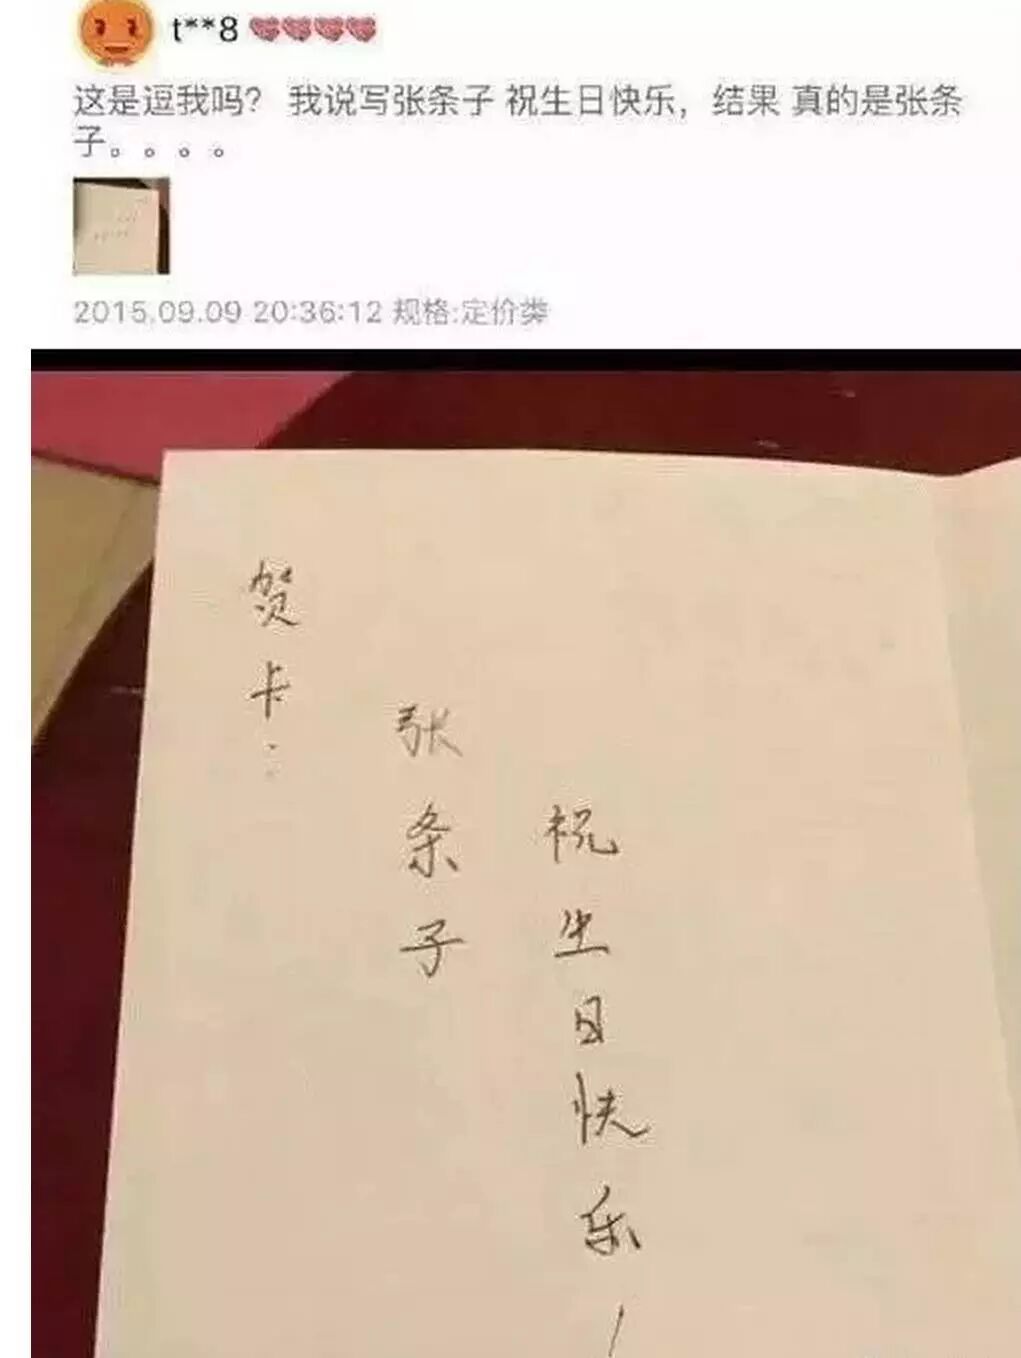 t**8
这是逗我吗？ 我说写张条子 祝生日快乐，结果 真的是张条
子。。。。
2015.09.09 20:36:12 规格:定价类
贺卡：
张条子
祝生日快乐！